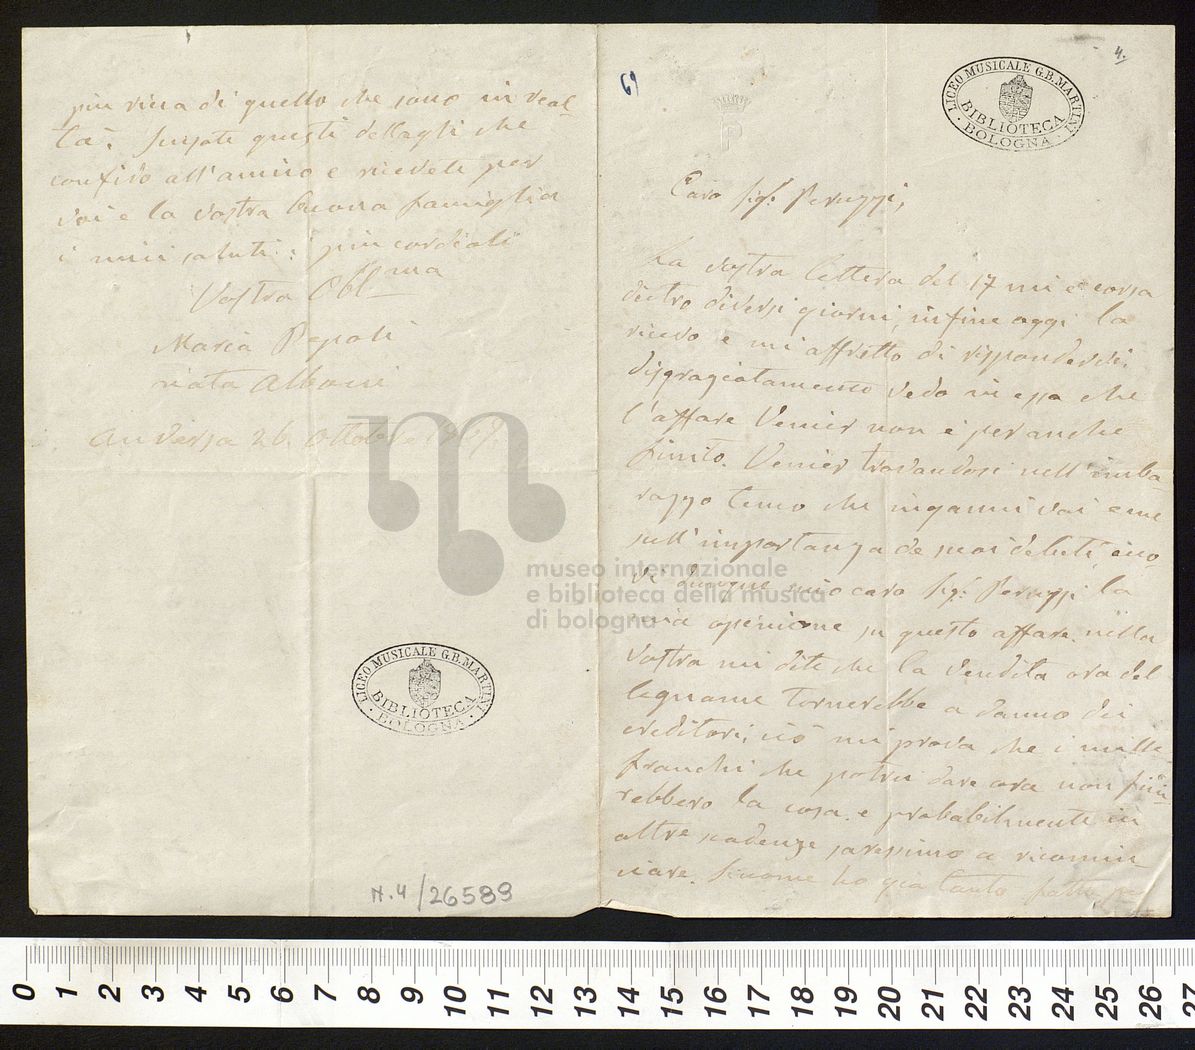 più ricca di quello che sono in real
tà. Scusate questi dettagli che
confido all'amico e ricevete per
voi e la vostra buona famiglia
i miei saluti i più cordiali
Vostra Obl^ma
Maria Pepoli
nata Alboni
Anversa 26 ottobre
N. 4/26589
LICEO MUSICALE G.B. MARTINI
BIBLIOTECA
BOLOGNA
museo internazionale
e biblioteca della musica
di bologna
4.
LICEO MUSICALE G.B. MARTINI
BIBLIOTECA
BOLOGNA
P
Caro Sig. Peruzzi,
La vostra lettera del 17 mi è corsa
dietro diversi giorni, infine oggi la
ricevo e mi affretto di rispondervi.
disgraziatamente vedo in essa che
l'affare Venier non è per anche
finito. Venier trovandosi nell'imba-
razzo temo che inganni voi e me
sull'importanza de suoi debiti, ecco-
vi dunque mio caro Sig. Peruzzi la
mia opinione su questo affare. nella
vostra mi dite che la vendita ora del
legname tornerebbe a danno dei
creditori, ciò mi prova che i mille
franchi che potrei dare ora non fini-
rebbero la cosa. e probabilmente in
altre scadenze saressimo a ricomin
ciare. Siccome ho già tanto fatto per
0 1 2 3 4 5 6 7 8 9 10 11 12 13 14 15 16 17 18 19 20 21 22 23 24 25 26 27